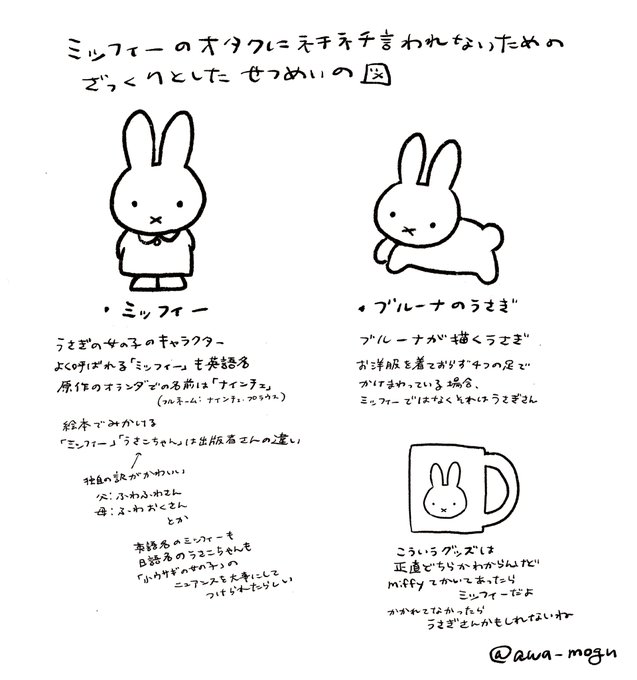 ミッフィーのオタクにネチネチ言われないための
ざっくりとした せつめいの図
・ミッフィー
うさぎの女の子のキャラクター
よく呼ばれる「ミッフィー」も英語名
原作のオランダでの名前は「ナインチェ」
(フルネーム：ナインチェ・プラウス)
絵本でみかける
「ミッフィー」「うさこちゃん」は出版者さんの違い
独自の訳がかわいい
父：ふわふわさん
母：ふわおくさん
とか
英語名のミッフィーも
日語名のうさこちゃんも
「小ウサギの女の子」の
ニュアンスを大事にして
つけられたらしい
・ブルーナのうさぎ
ブルーナが描くうさぎ
お洋服を着ておらず4つの足で
かけまわっている場合、
ミッフィーではなくそれはうさぎさん
こういうグッズは
正直どちらかわからんけど
miffyてかいてあったら
ミッフィーだよ
かかれてなかったら
うさぎさんかもしれないね
@awa-mogu